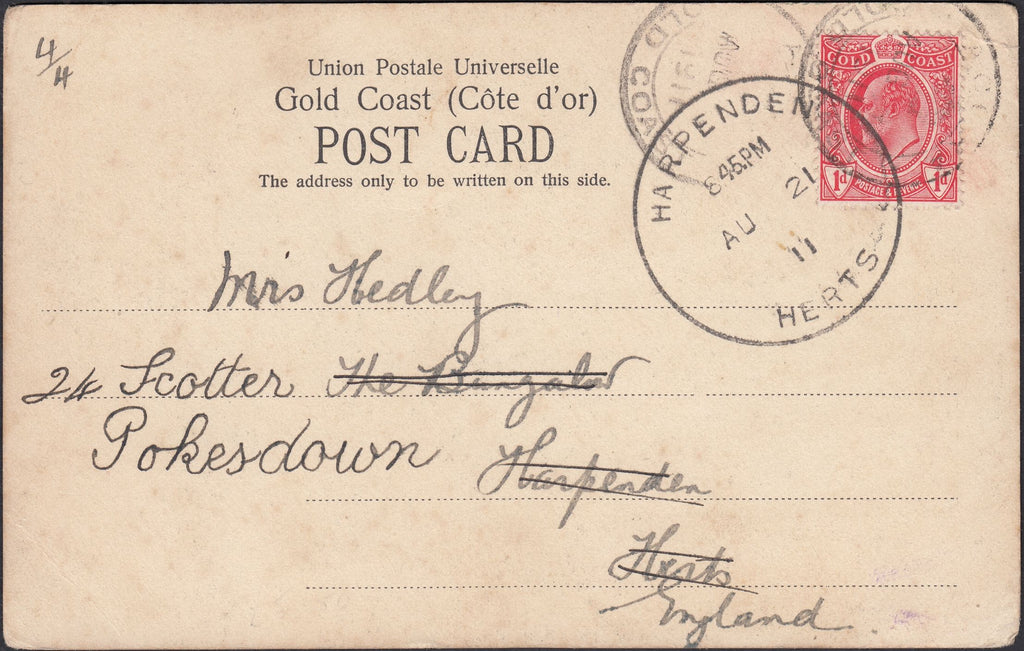 4/4
Union Postale Universelle
Gold Coast (Côte d'or)
POST CARD
The address only to be written on this side.
GOLD COAST
1d POSTAGE & REVENUE 1d
GOLD COA
HARPENDEN
8 45.PM
AU 21
11
HERTS
Mrs Hedley
24 Scotter The Bungalow
Pokesdown
Harpenden
Herts
England